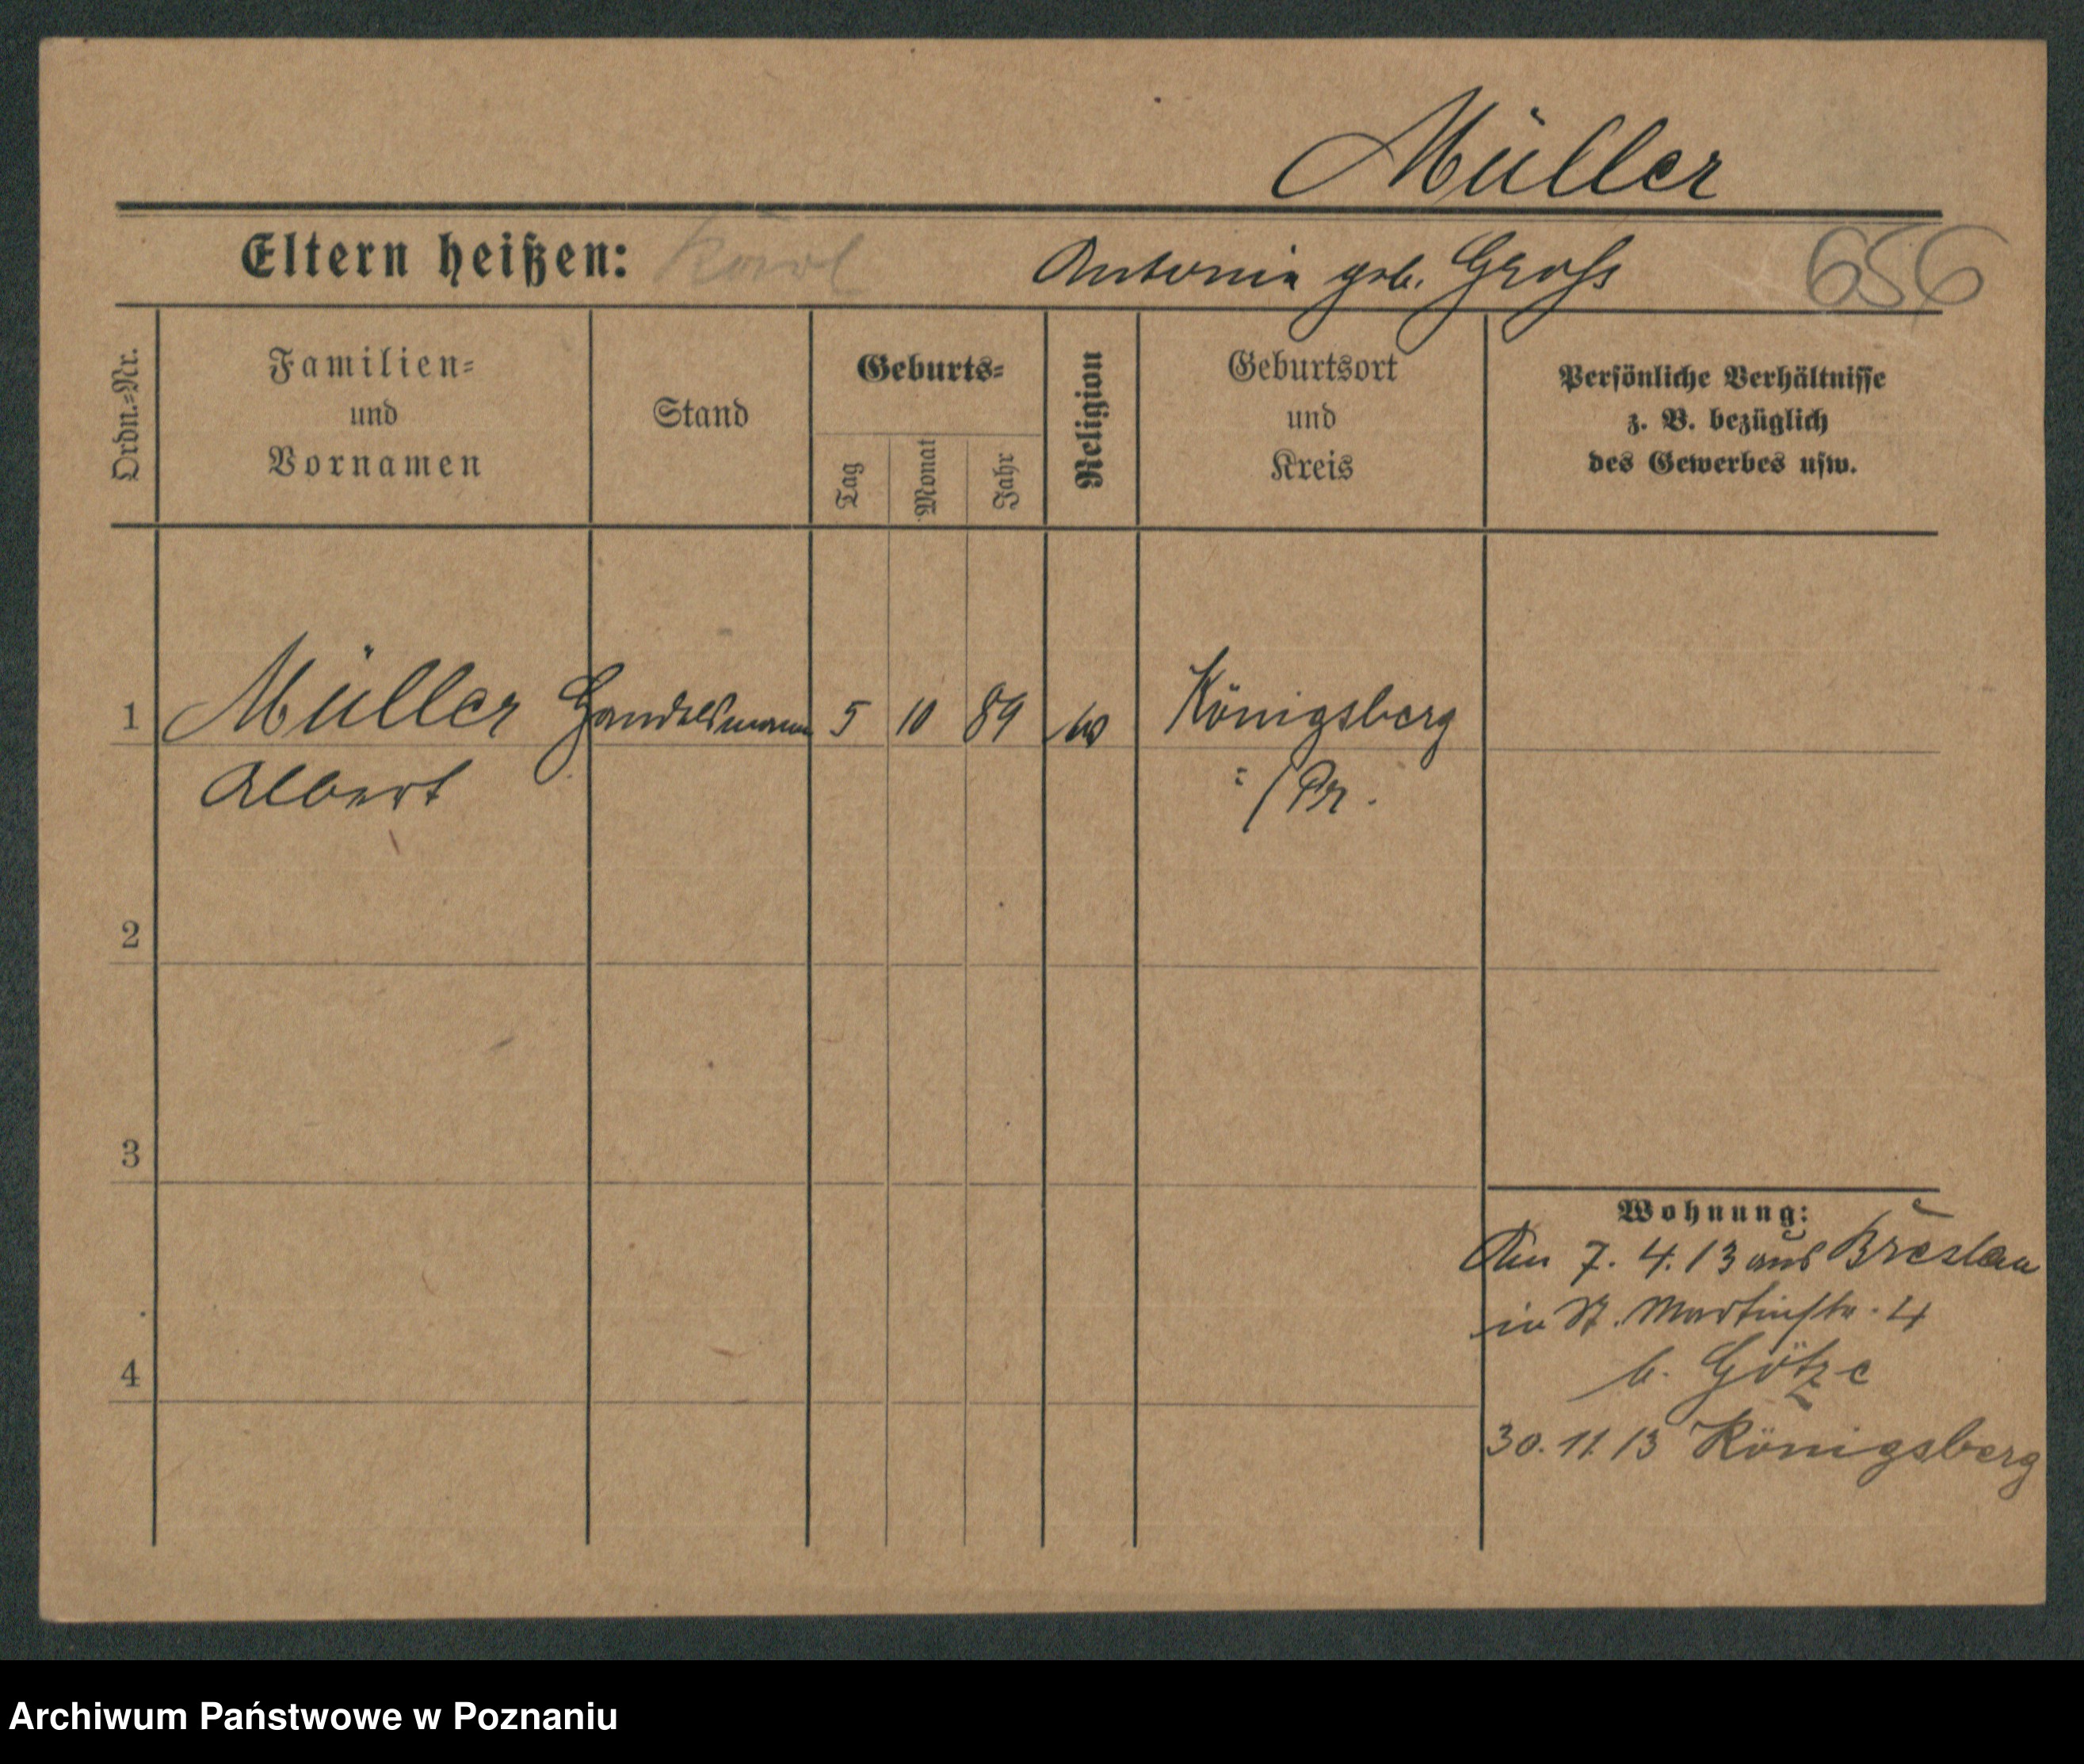 Müller
Eltern heißen: Karl Antonie geb. Groß 656
Ordn.=Nr.
Familien=
und
Vornamen
Stand
Geburts=
Tag
Monat
Jahr
Religion
Geburtsort
und
Kreis
Persönliche Verhältnisse
z. B. bezüglich
des Gewerbes usw.
1 Müller Handelsmann 5 10 89 Königsberg
Albert /Pr.
2
3
4
Wohnung:
7. 4. 13 aus Breslau
in St. Martinstr. 4
b. Götze
30. 11 13 Königsberg
Archiwum Państwowe w Poznaniu